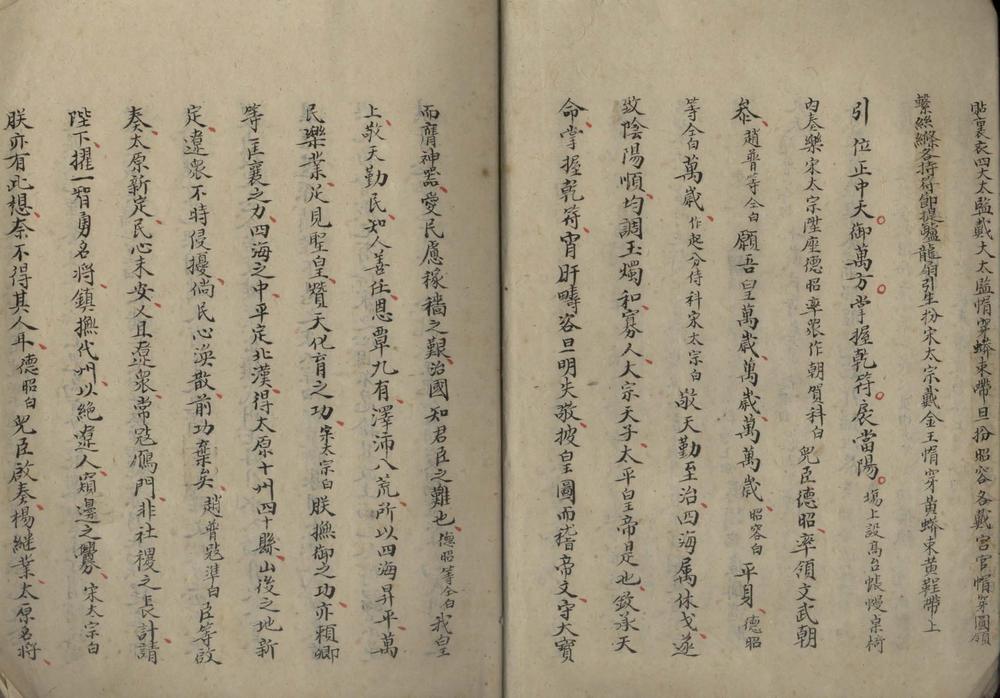 貼裏衣四大太監戴大太監帽穿蟒束帶旦扮昭容各戴宮官帽穿圓領
繫絲縧各持符節提爐龍扇引生扮宋太宗戴金王帽穿黃蟒束黃鞓帶上
引 位正中天御萬方掌握乾符扆當陽場上設高台帳幔桌椅
內奏樂宋太宗陞座德昭率眾作朝賀科白 兒臣德昭率領文武朝
叅趙普等仝白願吾皇萬歲萬歲萬萬歲昭容白 平身德昭
等仝白萬歲作起分侍科宋太宗白 敬天勤至治四海属休戈遂
致陰陽順均調玉燭和寡人大宗天子太平皇帝是也欽承天
命掌握乾符宵旰疇咨旦明失敬披皇圖而稽帝文守大寶
而膺神器愛民慮稼穡之艱治國知君臣之難也德昭等仝白我皇
上敬天勤民知人善任恩覃九有澤沛八荒所以四海昇平萬
民樂業足見聖皇贊天化育之功宋太宗白 朕撫御之功亦賴卿
等匡襄之力四海之中平定北漢得太原十州四十縣山後之地新
定遼眾不時侵擾倘民心渙散前功棄矣趙普寇準白臣等啟
奏太原新定民心未安乂且遼眾常寇鴈門非社稷之長計請
陛下擢一智勇名將鎮撫代州以絕遼人窺邊之釁宋太宗白
朕亦有此想奈不得其人耳德昭白兒臣啟奏楊継業太原名將